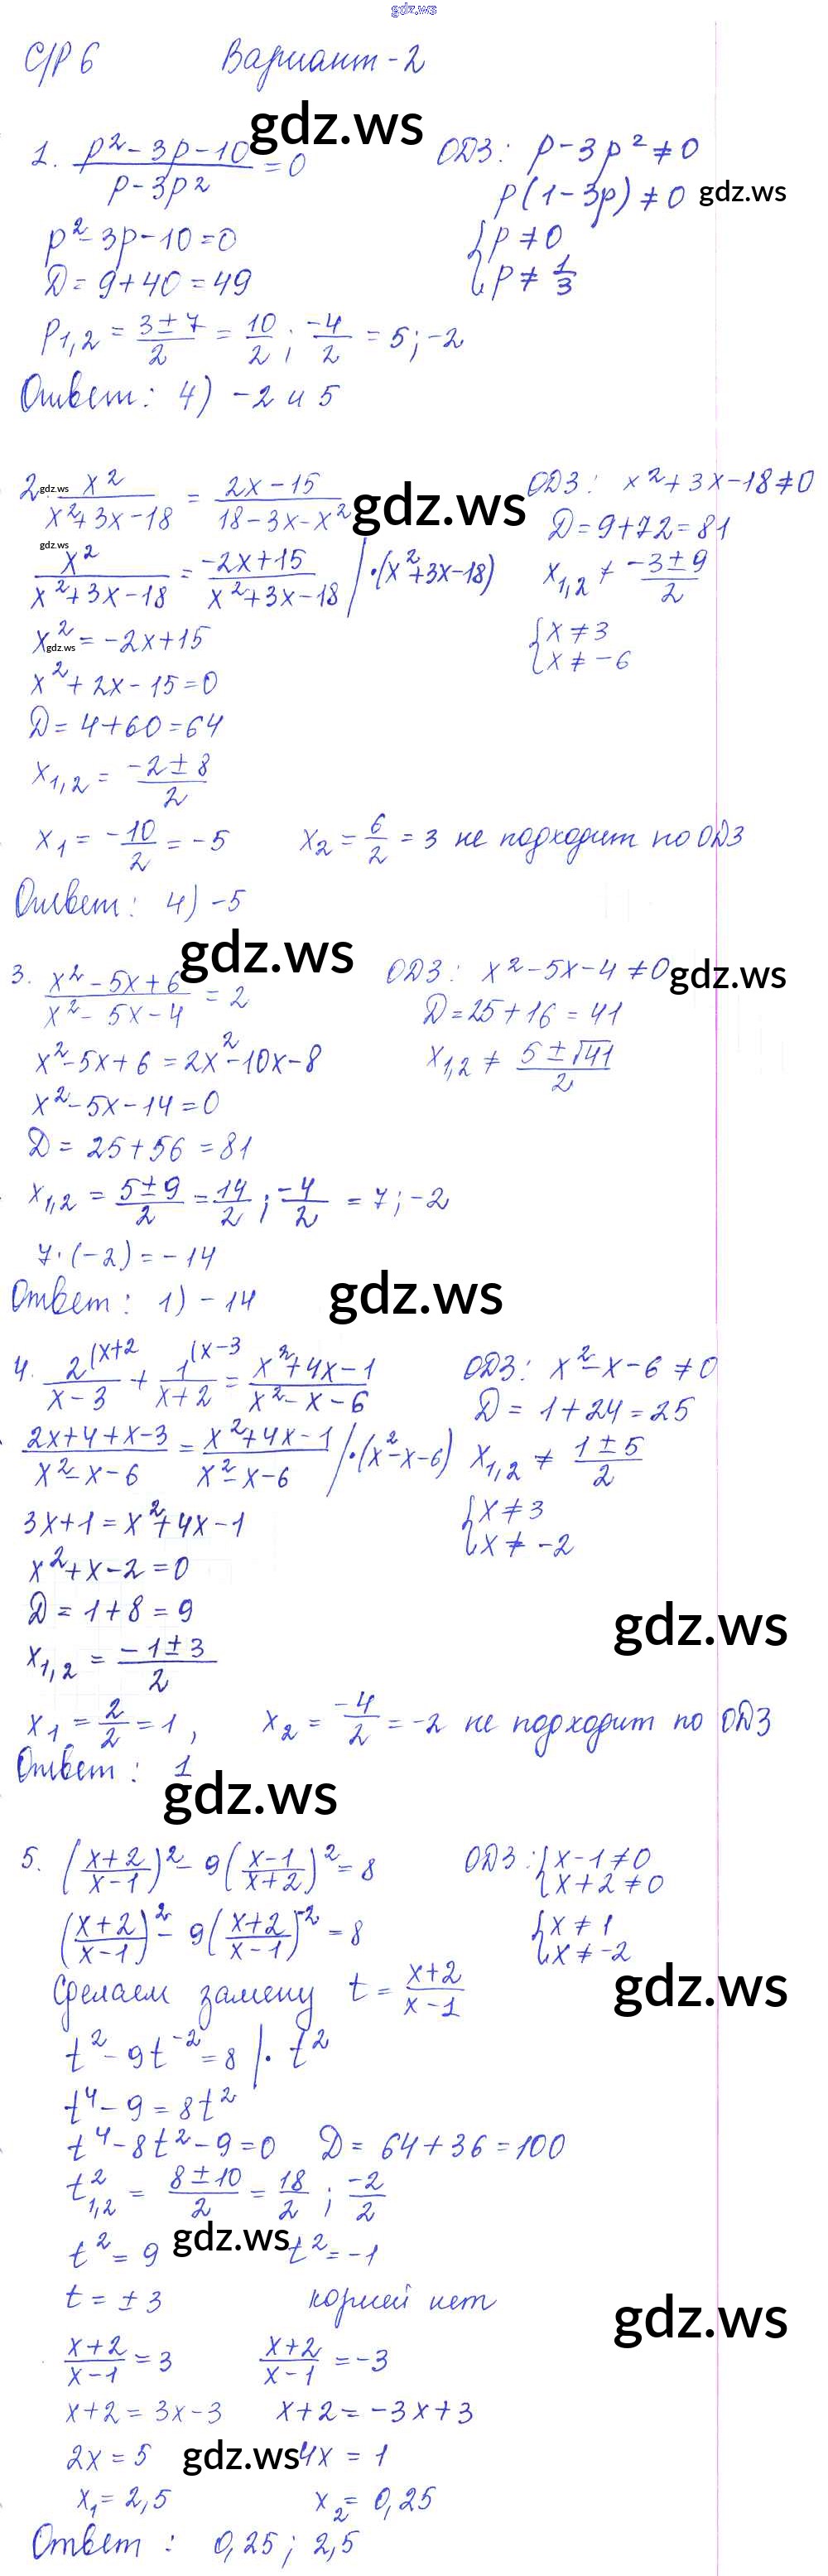 gdz.ws
С/Р 6 Вариант-2
gdz.ws
1. (p² - 3p - 10)/(p - 3p²) = 0 ОДЗ: p - 3p² ≠ 0
p(1 - 3p) ≠ 0 gdz.ws
p² - 3p - 10 = 0 { p ≠ 0
D = 9 + 40 = 49 { p ≠ 1/3
p1,2 = (3 ± 7)/2 = 10/2 ; -4/2 = 5; -2
Ответ: 4) -2 и 5
2. gdz.ws x²/(x² + 3x - 18) = (2x - 15)/(18 - 3x - x²) gdz.ws ОДЗ: x² + 3x - 18 ≠ 0
D = 9 + 72 = 81
gdz.ws
x²/(x² + 3x - 18) = (-2x + 15)/(x² + 3x - 18) | ·(x² + 3x - 18) x1,2 ≠ (-3 ± 9)/2
x² = -2x + 15 { x ≠ 3
gdz.ws { x ≠ -6
x² + 2x - 15 = 0
D = 4 + 60 = 64
x1,2 = (-2 ± 8)/2
x1 = -10/2 = -5 x2 = 6/2 = 3 не подходит по ОДЗ
Ответ: 4) -5
gdz.ws
3. (x² - 5x + 6)/(x² - 5x - 4) = 2 ОДЗ: x² - 5x - 4 ≠ 0 gdz.ws
D = 25 + 16 = 41
x² - 5x + 6 = 2x² - 10x - 8 x1,2 ≠ (5 ± √41)/2
x² - 5x - 14 = 0
D = 25 + 56 = 81
x1,2 = (5 ± 9)/2 = 14/2 ; -4/2 = 7; -2
7 · (-2) = -14
Ответ: 1) -14 gdz.ws
4. 2(x+2/(x - 3) + 1(x-3/(x + 2) = (x² + 4x - 1)/(x² - x - 6) ОДЗ: x² - x - 6 ≠ 0
D = 1 + 24 = 25
(2x + 4 + x - 3)/(x² - x - 6) = (x² + 4x - 1)/(x² - x - 6) | ·(x² - x - 6) x1,2 ≠ (1 ± 5)/2
3x + 1 = x² + 4x - 1 { x ≠ 3
{ x ≠ -2
x² + x - 2 = 0
D = 1 + 8 = 9
gdz.ws
x1,2 = (-1 ± 3)/2
x1 = 2/2 = 1, x2 = -4/2 = -2 не подходит по ОДЗ
Ответ: 1
gdz.ws
5. ((x+2)/(x-1))² - 9((x-1)/(x+2))² = 8 ОДЗ: { x - 1 ≠ 0
{ x + 2 ≠ 0
((x+2)/(x-1))² - 9((x+2)/(x-1))⁻² = 8 { x ≠ 1
{ x ≠ -2
gdz.ws
Сделаем замену t = (x+2)/(x-1)
t² - 9t⁻² = 8 | · t²
t⁴ - 9 = 8t²
t⁴ - 8t² - 9 = 0 D = 64 + 36 = 100
t²1,2 = (8 ± 10)/2 = 18/2 ; -2/2
t² = 9 gdz.ws t² = -1
t = ± 3 корней нет
gdz.ws
(x+2)/(x-1) = 3 (x+2)/(x-1) = -3
x + 2 = 3x - 3 x + 2 = -3x + 3
2x = 5 gdz.ws 4x = 1
x1 = 2,5 x2 = 0,25
Ответ: 0,25; 2,5